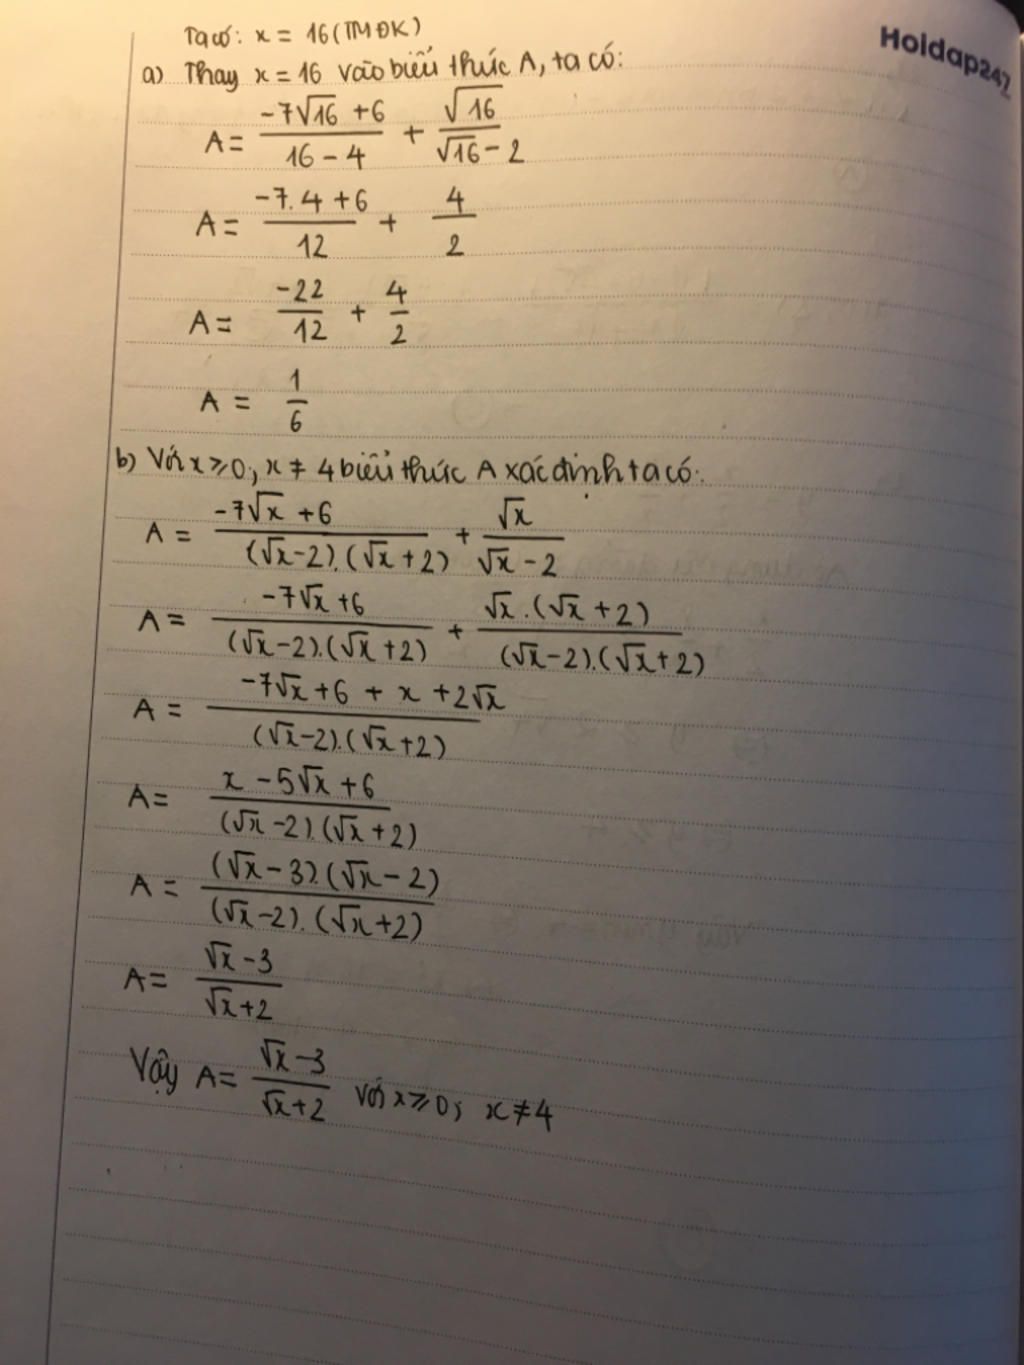 Hoidap247
Ta có: x = 16 (TMĐK)
a) Thay x = 16 vào biểu thức A, ta có:
A = (-7√16 + 6)/(16 - 4) + √16/(√16 - 2)
A = (-7.4 + 6)/12 + 4/2
A = -22/12 + 4/2
A = 1/6
b) Với x ⩾ 0; x ≠ 4 biểu thức A xác định ta có:
A = (-7√x + 6)/((√x - 2).(√x + 2)) + √x/(√x - 2)
A = (-7√x + 6)/((√x - 2).(√x + 2)) + (√x.(√x + 2))/((√x - 2).(√x + 2))
A = (-7√x + 6 + x + 2√x)/((√x - 2).(√x + 2))
A = (x - 5√x + 6)/((√x - 2).(√x + 2))
A = ((√x - 3).(√x - 2))/((√x - 2).(√x + 2))
A = (√x - 3)/(√x + 2)
Vậy A = (√x - 3)/(√x + 2) với x ⩾ 0; x ≠ 4